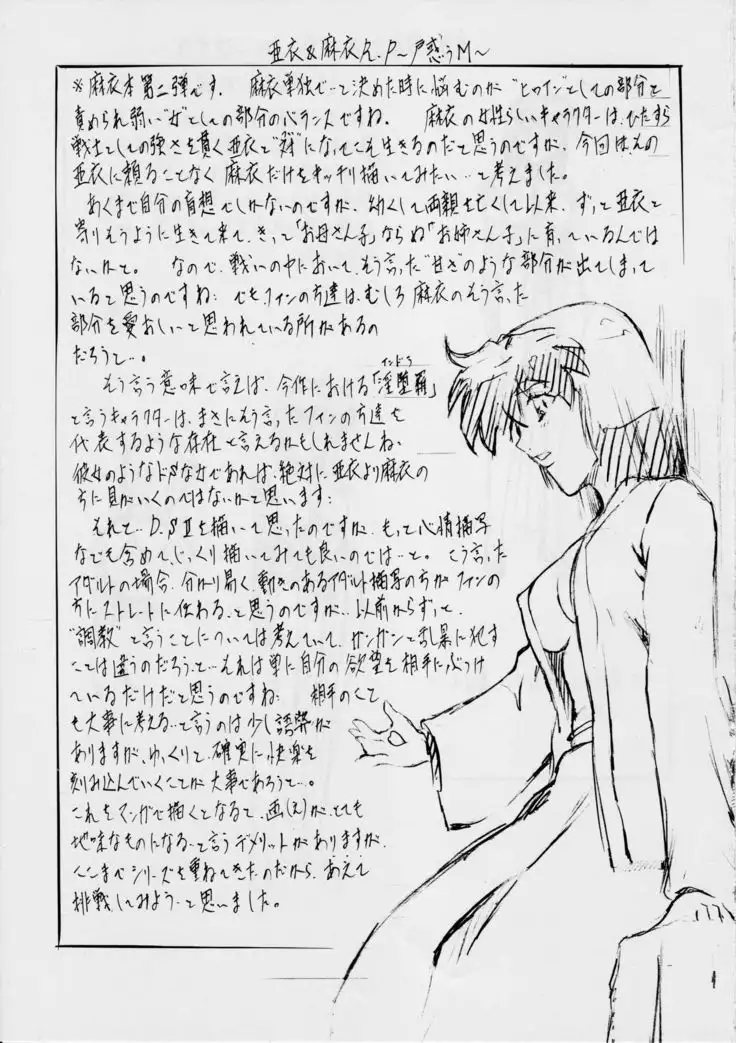 亜衣&麻衣R.P〜戸惑うM〜
※麻衣本第二弾です。 麻衣単独で…と決めた時に悩むのが“ヒロイン”としての部分と
責められ弱い“女”としての部分のバランスですね。 麻衣の女性らしいキャラクターは、ひたすら
戦士としての強さを貫く亜衣と“対”になってこそ生きるのだと思うのですが、今回はその
亜衣に頼ることなく麻衣だけをキッチリ描いてみたい…と考えました。
あくまで自分の妄想でしかないのですが、幼くして両親を亡くして以来、ずっと亜衣と
寄りそうように生きて来て、きっと「お母さん子」ならぬ「お姉さん子」に育っているんでは
ないかと。 なので、戦いの中において、そう言った“甘さ”のような部分が出てしまって
いると思うのですね: でもファンの方達は、むしろ麻衣のそう言った
部分を愛おしいと思われている所があるの
だろうと…。
そう言う意味で言えば、今作における「淫堕羅」
インドラ
と言うキャラクターは、まさにそう言ったファンの方達を
代表するような存在と言えるかもしれませんね。
彼女のようなドSな女であれば、絶対に亜衣より麻衣の
方に目がいくのではないかと思います:
それと…D.SⅡを描いて思ったのですが、もっと心情描写
なども含めて、じっくり描いてみても良いのでは…と。 こう言った
アダルトの場合、分かり易く、動きのあるアダルト描写の方がファンの
方にストレートに伝わる、と思うのですが…以前からずっと、
“調教”と言うことについては考えていて、ガンガンと乱暴に犯す
ことは違うのだろう、と…それは単に自分の欲望を相手にぶつけ
ているだけだと思うのですね: 相手のくて
も大事に考える…と言うのは少し語弊が
ありますが、ゆっくりと、確実に快楽を
刻み込んでいくことが大事であろうと…。
これをマンガで描くとなると、画(え)が、とても
地味なものになる、と言うデメリットがありますが、
ここまでシリーズを重ねてきたのだから、あえて
挑戦してみよう…と思いました。